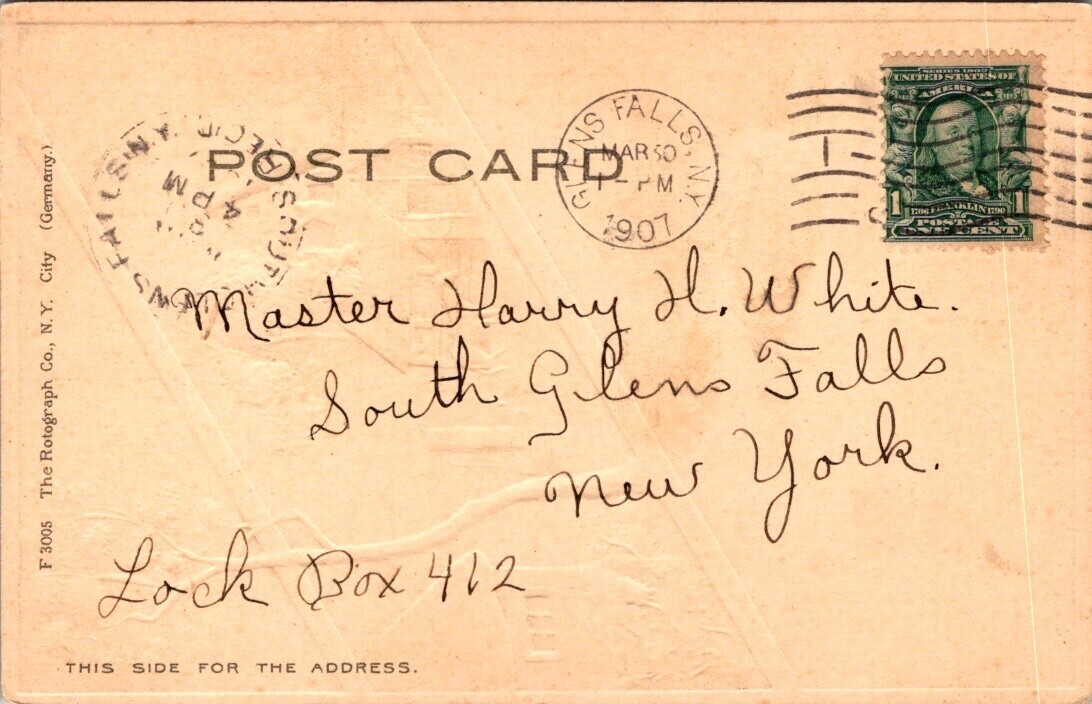 POST CARD
GLENS FALLS, N.Y.
MAR 30
1 - PM
1907
SERIES 1902
UNITED STATES OF
AMERICA
1706 FRANKLIN 1790
1 1
POSTAGE
ONE CENT
SOUTH GLENS FALLS N.Y.
REC'D.
4
PM
Master Harry H. White.
South Glens Falls
New York.
Lock Box 412
THIS SIDE FOR THE ADDRESS.
F 3005 The Rotograph Co., N. Y. City (Germany.)